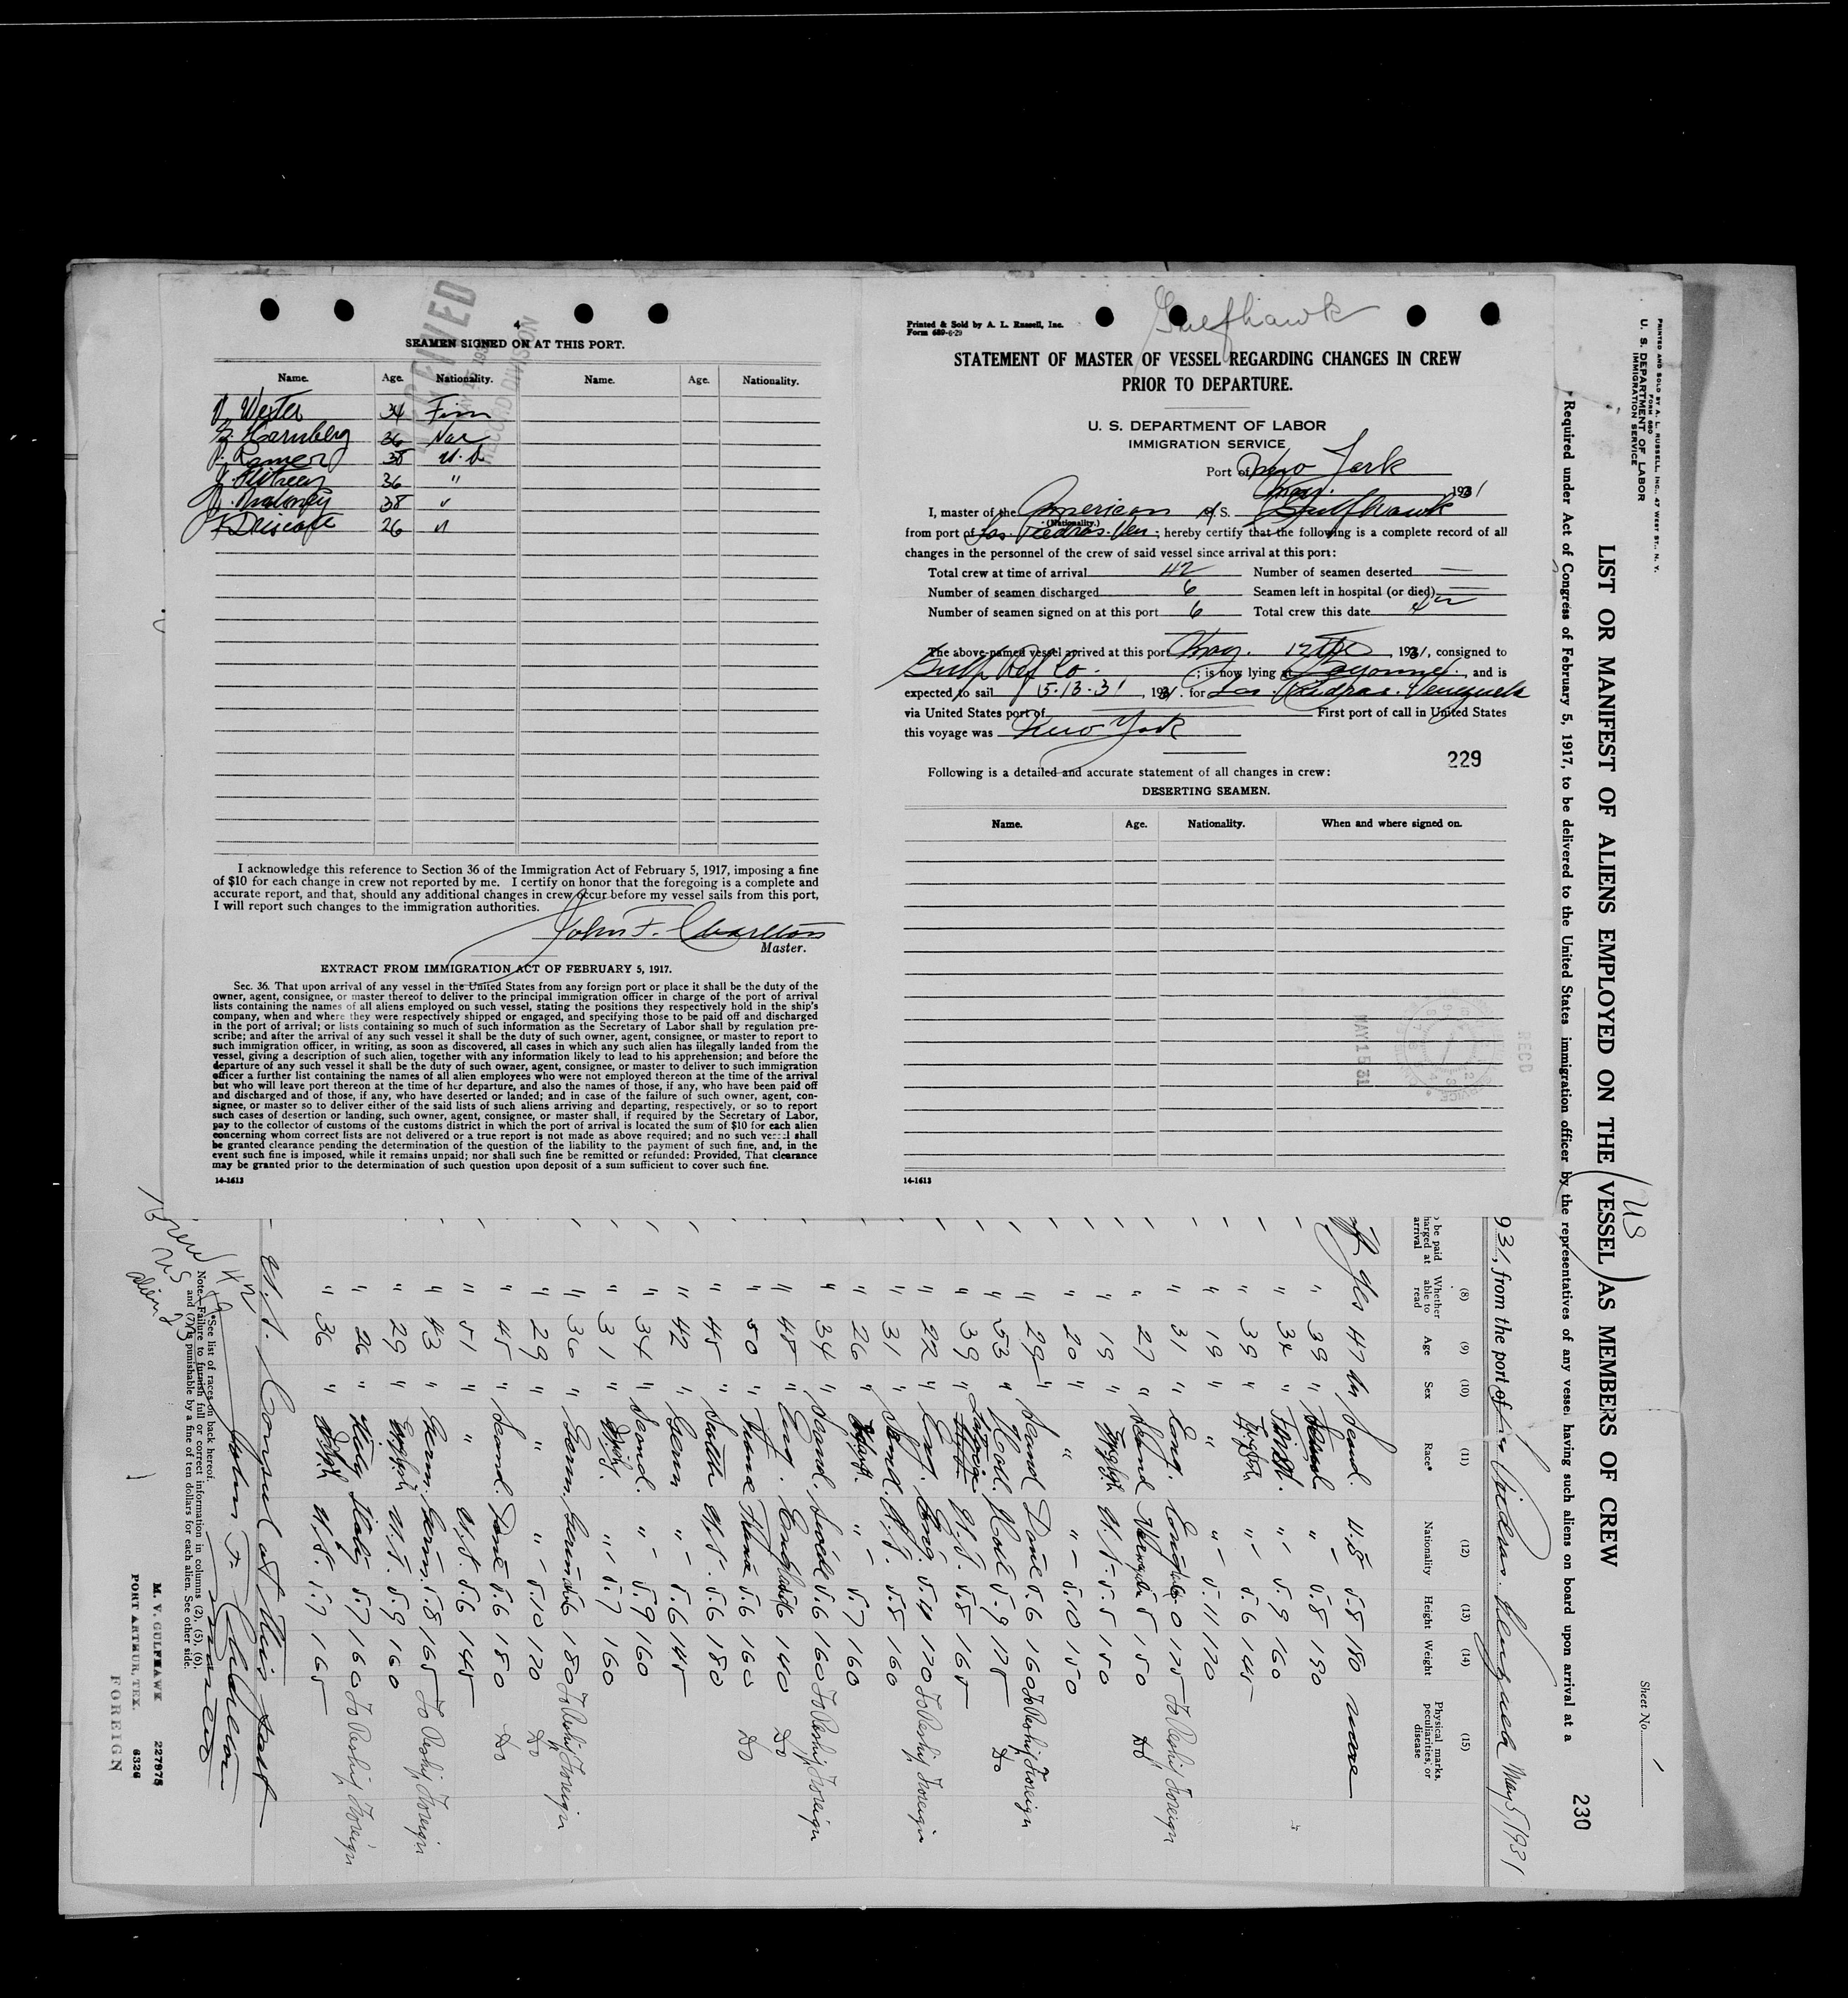 4
SEAMEN SIGNED ON AT THIS PORT.
Name. Age. Nationality. Name. Age. Nationality.
Wester 34 Finn
Hornberg 36 Nor
Ramer 38 U.S.
36 "
Maloney 38 "
26 "
RECEIVED
RECORD DIVISION
I acknowledge this reference to Section 36 of the Immigration Act of February 5, 1917, imposing a fine
of $10 for each change in crew not reported by me. I certify on honor that the foregoing is a complete and
accurate report, and that, should any additional changes in crew occur before my vessel sails from this port,
I will report such changes to the immigration authorities.
John F. Charlton
Master.
EXTRACT FROM IMMIGRATION ACT OF FEBRUARY 5, 1917.
Sec. 36. That upon arrival of any vessel in the United States from any foreign port or place it shall be the duty of the
owner, agent, consignee, or master thereof to deliver to the principal immigration officer in charge of the port of arrival
lists containing the names of all aliens employed on such vessel, stating the positions they respectively hold in the ship's
company, when and where they were respectively shipped or engaged, and specifying those to be paid off and discharged
in the port of arrival; or lists containing so much of such information as the Secretary of Labor shall by regulation pre-
scribe; and after the arrival of any such vessel it shall be the duty of such owner, agent, consignee, or master to report to
such immigration officer, in writing, as soon as discovered, all cases in which any such alien has illegally landed from the
vessel, giving a description of such alien, together with any information likely to lead to his apprehension; and before the
departure of any such vessel it shall be the duty of such owner, agent, consignee, or master to deliver to such immigration
officer a further list containing the names of all alien employees who were not employed thereon at the time of the arrival
but who will leave port thereon at the time of her departure, and also the names of those, if any, who have been paid off
and discharged and of those, if any, who have deserted or landed; and in case of the failure of such owner, agent, con-
signee, or master so to deliver either of the said lists of such aliens arriving and departing, respectively, or so to report
such cases of desertion or landing, such owner, agent, consignee, or master shall, if required by the Secretary of Labor,
pay to the collector of customs of the customs district in which the port of arrival is located the sum of $10 for each alien
concerning whom correct lists are not delivered or a true report is not made as above required; and no such vessel shall
be granted clearance pending the determination of the question of the liability to the payment of such fine, and, in the
event such fine is imposed, while it remains unpaid; nor shall such fine be remitted or refunded: Provided, That clearance
may be granted prior to the determination of such question upon deposit of a sum sufficient to cover such fine.
14-1613
Gulfhawk
Printed & Sold by A. L. Russell, Inc.
Form 689-6-29
STATEMENT OF MASTER OF VESSEL REGARDING CHANGES IN CREW
PRIOR TO DEPARTURE.
U. S. DEPARTMENT OF LABOR
IMMIGRATION SERVICE
Port of New York
May. 1931
I, master of the American M S. Gulfhawk
(Nationality.)
from port of Las Piedras. Ven; hereby certify that the following is a complete record of all
changes in the personnel of the crew of said vessel since arrival at this port:
Total crew at time of arrival 42 Number of seamen deserted
Number of seamen discharged 6 Seamen left in hospital (or died)
Number of seamen signed on at this port 6 Total crew this date 42
The above-named vessel arrived at this port May. 12th, 1931, consigned to
Gulf Ref Co.; is now lying at Bayonne, and is
expected to sail 5-13-31, 1931. for Las. Piedras. Venezuela
via United States port of First port of call in United States
this voyage was New York
229
Following is a detailed and accurate statement of all changes in crew:
DESERTING SEAMEN.
Name. Age. Nationality. When and where signed on.
MAY 15 31
RECD
14-1613
PRINTED AND SOLD BY A. L. RUSSELL, INC., 47 WEST ST., N. Y.
FORM 680
U. S. DEPARTMENT OF LABOR
IMMIGRATION SERVICE
Sheet No. 1
US
LIST OR MANIFEST OF ALIENS EMPLOYED ON THE VESSEL AS MEMBERS OF CREW
230
Required under Act of Congress of February 5, 1917, to be delivered to the United States immigration officer by the representatives of any vessel having such aliens on board upon arrival at a
931, from the port of Las Piedras. Venezuela May 5/1931
(8) (9) (10) (11) (12) (13) (14) (15)
Whether able to read Age Sex Race* Nationality Height Weight Physical marks, peculiarities, or disease
Yes 47 M Scand. U.S. 5.8 180 none
" 39 " " 5.8 190
" 34 " " 5.9 160
" 39 " English " 5.6 145
" 19 " " " 5.11 170
" 31 " Eng. 175 To Reship Foreign
" 27 " Scand 5.5 150 Do
" 19 " English U.S. 5.5 150
" 20 " " " 5.10 150
" 29 " Scand Dane 5.6 160 To Reship Foreign
" 53 " Holl. Holl 5.9 175 Do
" 39 " U.S. 5.8 165
" 22 " Eng. Eng. 5.11 170 To Reship Foreign
" 31 " Scand. U.S. 5.8 160
" 26 " " 5.7 160
" 34 " Scand. Swede 5.6 160 To Reship Foreign
" 48 " Eng. England 140 Do
" 50 " 5.6 160 Do
" 45 " Scotch U.S. 5.6 180
" 42 " Germ " 5.6 145
" 34 " Scand. " 5.9 160
" 31 " " 5.7 160
" 36 " Germ. 180 To Reship Foreign
" 29 " " " 5.10 170 Do
" 45 " Scand. Dane 5.6 180 Do
" 51 " " U.S. 5.6 145
" 43 " Germ. Germ. 5.8 165 To Reship Foreign
" 29 " English U.S. 5.9 160
" 26 " Italy Italy 5.7 160 To Reship Foreign
" 36 " U.S. 5.7 165
U.S. Consul at this port
John F. Charlton
Master
*See list of races on back hereof.
Note.—Failure to furnish full or correct information in columns (2), (5), (6),
and (7) is punishable by a fine of ten dollars for each alien. See other side.
M. V. GULFHAWK 227975
PORT ARTHUR, TEX. 6326
FOREIGN